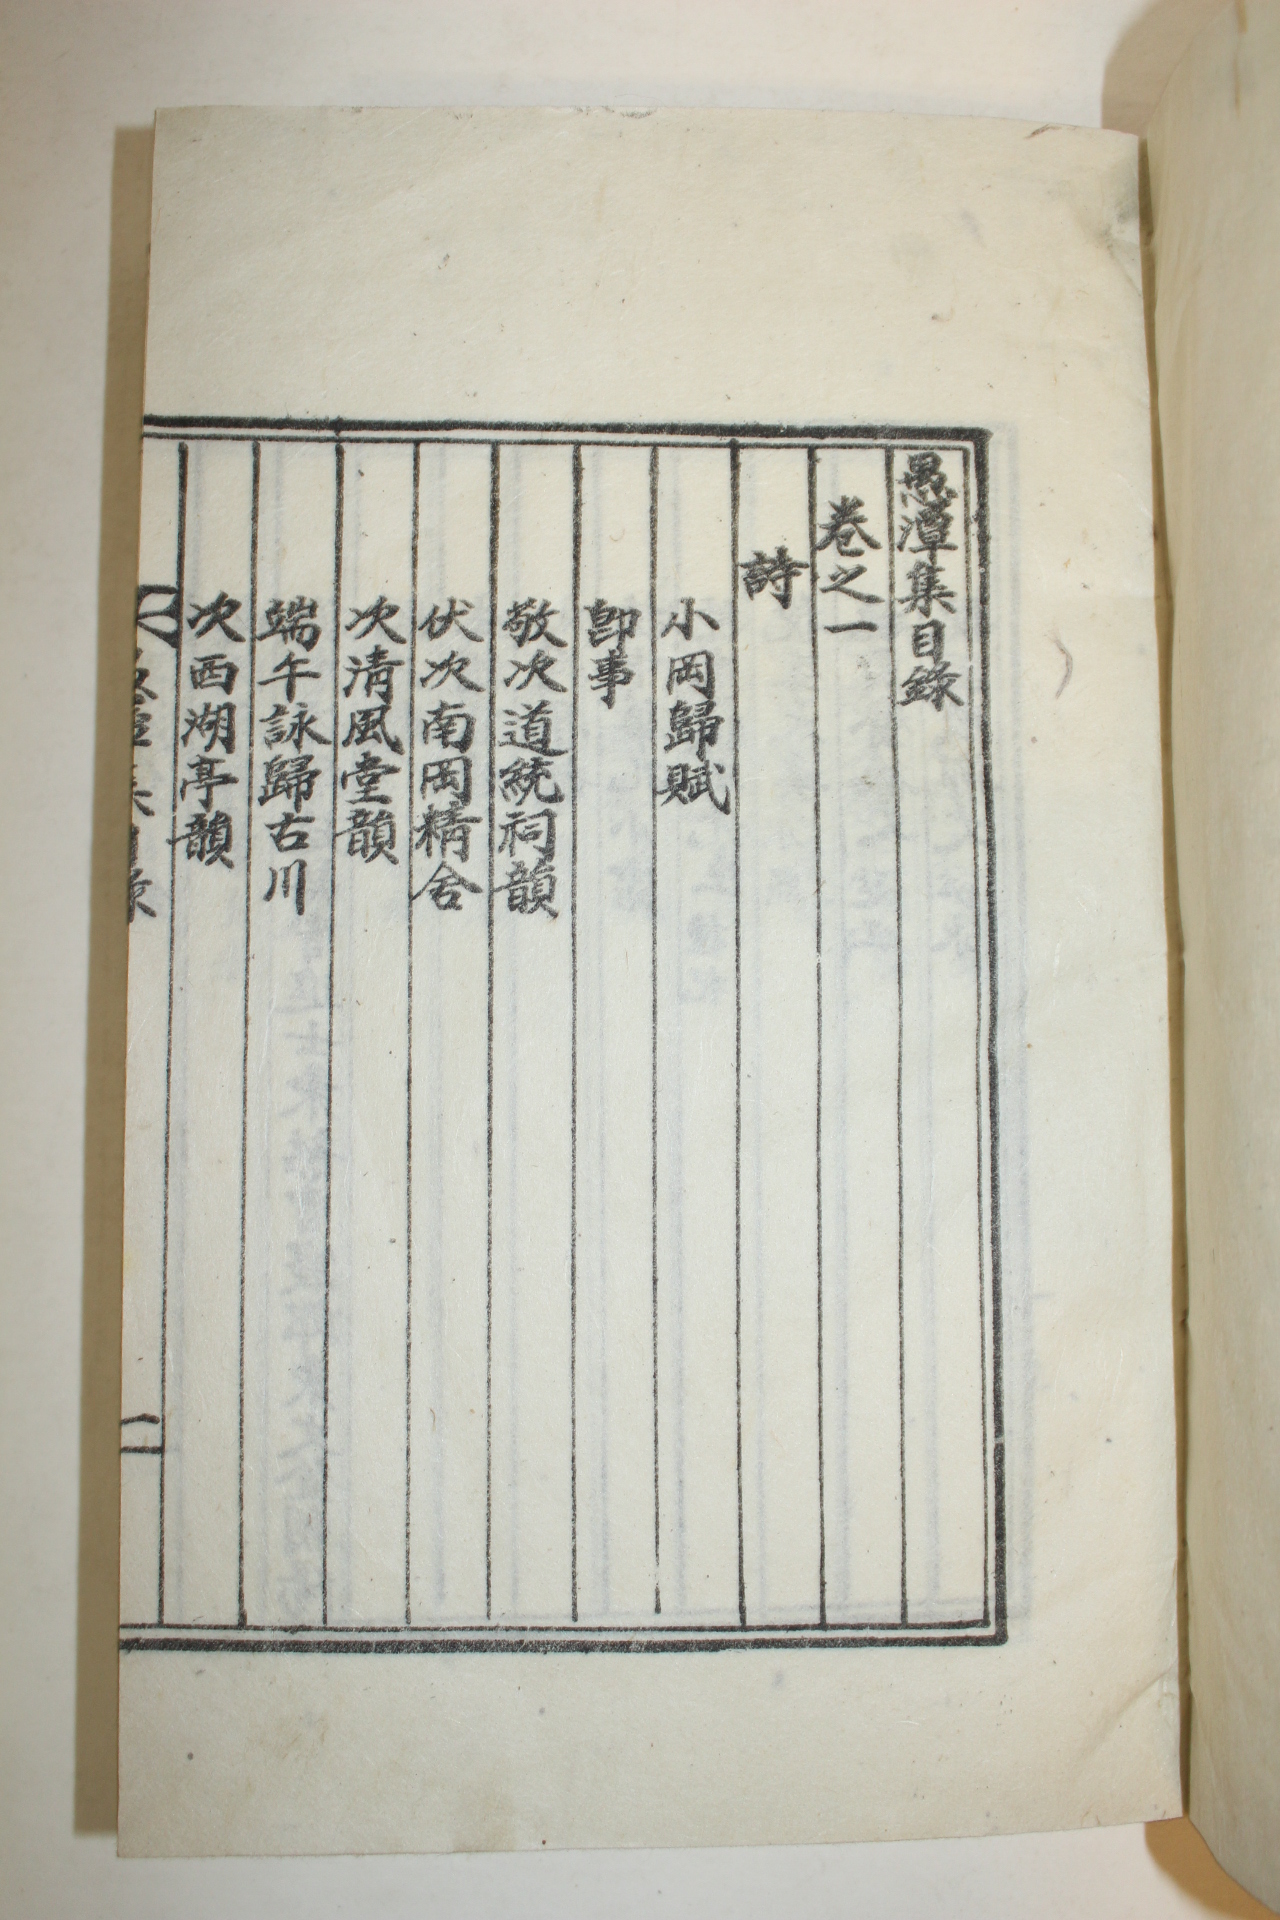 愚潭集目錄
卷之一
詩
小岡歸賦
卽事
敬次道統祠韻
伏次南岡精舍
次淸風堂韻
端午詠歸古川
次西湖亭韻